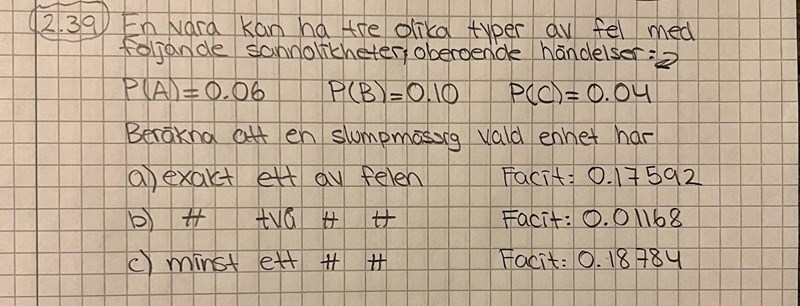 2.39 En vara kan ha tre olika typer av fel med
följande sannolikheter, oberoende händelser:
P(A)=0.06 P(B)=0.10 P(C)=0.04
Beräkna att en slumpmässig vald enhet har
a) exakt ett av felen Facit: 0.17592
b) " två " " Facit: 0.01168
c) minst ett " " Facit: 0.18784